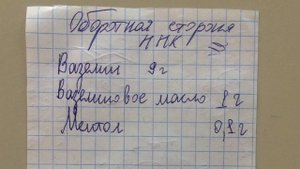 Оборотная сторона
ННК
Вазелин 9 г
Вазелиновое масло 1 г
Ментол 0,1 г